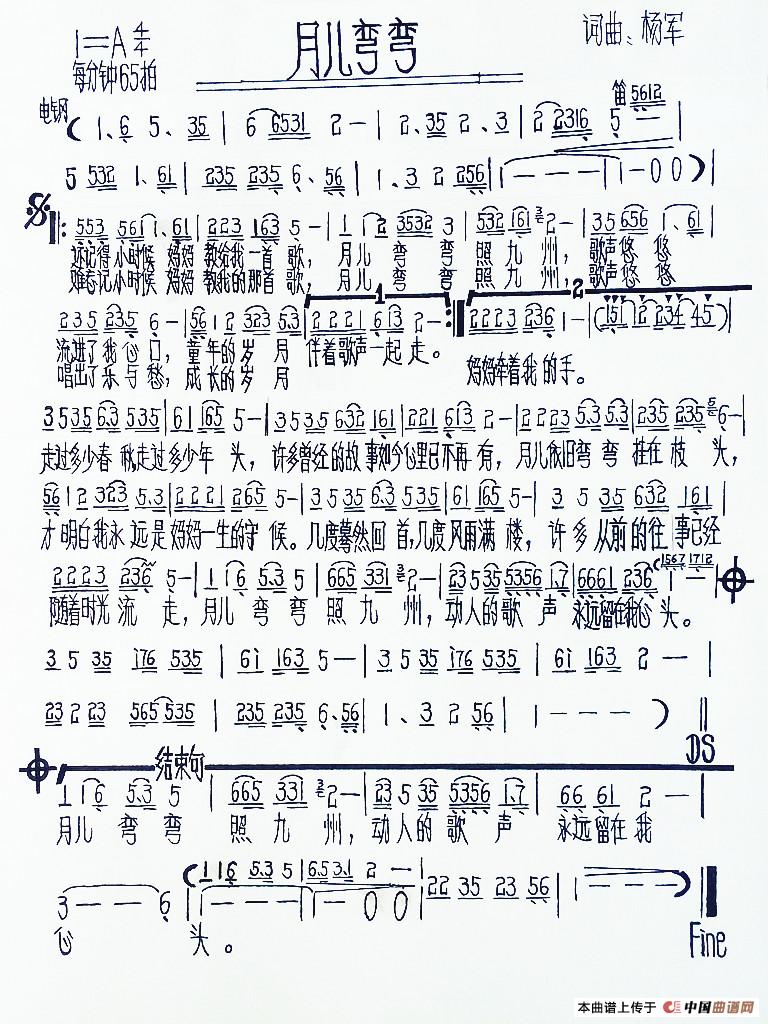 月儿弯弯
1=A 4/4
每分钟65拍
词曲:杨军
电钢
( 1、6 5、35 | 6 6531 2 — | 2、35 2、3 | 2 2316 5 — —
笛 5612
5 532 1、61 | 235 235 6、56 | 1、3 2 256 | 1 — — — | 1 — 0 0 ) |
𝄋 ‖: 553 561 1、61 | 223 163 5 — | 1 1 2 3532 3 | 532 161 2 — | 35 656 1、61
还记得小时候 妈妈教给我一首歌, 月儿弯弯照九州, 歌声悠悠
难忘记小时候 妈妈教我的那首歌, 月儿弯弯照九州, 歌声悠悠
1
2
235 235 6 — | 56 12 323 5.3 | 2221 613 2 — :‖ 2223 236 1 — | (151 12 234 45) |
流进了我心门, 童年的岁月 伴着歌声一起走。
唱出了乐与愁, 成长的岁月 妈妈牵着我的手。
3535 6.3 535 | 61 165 5 — | 3535 632 161 | 221 613 2 — | 2223 5.3 5.3 | 235 235 6 — |
走过多少春秋,走过多少年头, 许多曾经的故事如今心里已不再有, 月儿依旧弯弯挂在枝头,
56 12 323 5.3 | 2221 265 5 — | 3535 6.3 535 | 61 165 5 — | 3 5 35 632 161 |
才明白我永远是妈妈一生的守候。几度蓦然回首,几度风雨满楼, 许多从前的往事已经
2223 236 5 — | 1 16 5.3 5 | 665 331 2 — | 23 535 5356 1.7 | 6661 236 1 — —
(1567 1712
随着时光流走, 月儿弯弯照九州, 动人的歌声 永远留在我心头。
3 5 35 176 535 | 61 163 5 — | 3 5 35 176 535 | 61 163 2 — |
23 2 23 565 535 | 235 235 6、56 | 1、3 2 56 | 1 — — — ) ‖
DS
结束句
1 16 5.3 5 | 665 331 2 — | 23 5 35 5356 1.7 | 66 61 2 — |
月儿弯弯照九州, 动人的歌声 永远留在我
(1 16 5.3 5 | 6.5 3.1 2 —
3 — — 6 | 1 — — — | 1 — 0 0 | 22 35 23 56 | 1 — — — ) ‖
心头。
Fine
本曲谱上传于 中国曲谱网